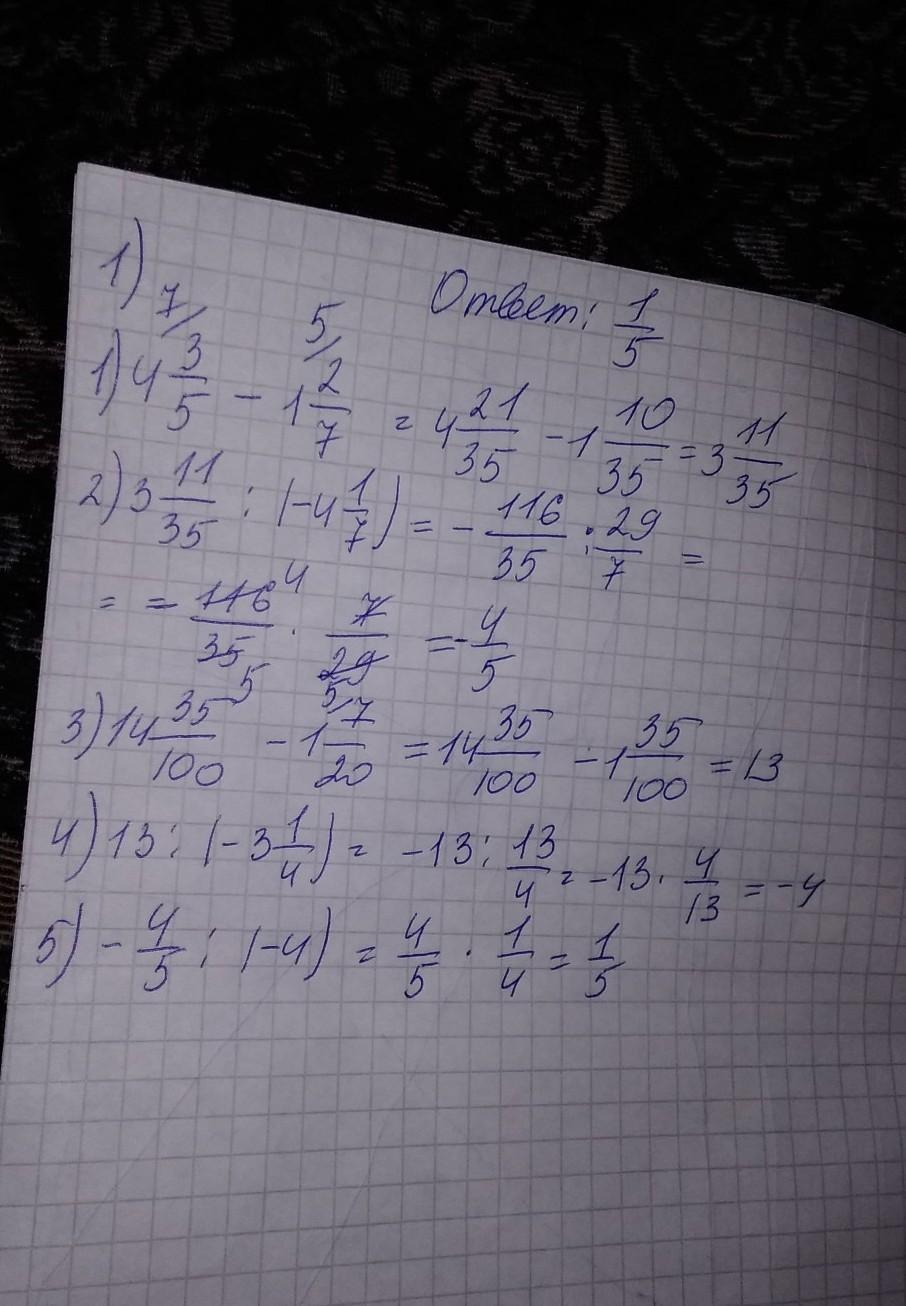 1)
Ответ: 1/5
7/ 5/
1) 4 3/5 - 1 2/7 = 4 21/35 - 1 10/35 = 3 11/35
2) 3 11/35 : (-4 1/7) = - 116/35 : 29/7 =
= - 116/35 · 7/29 = - 4/5
4 5
5/
3) 14 35/100 - 1 7/20 = 14 35/100 - 1 35/100 = 13
4) 13 : (-3 1/4) = -13 : 13/4 = -13 · 4/13 = -4
5) - 4/5 : (-4) = 4/5 · 1/4 = 1/5